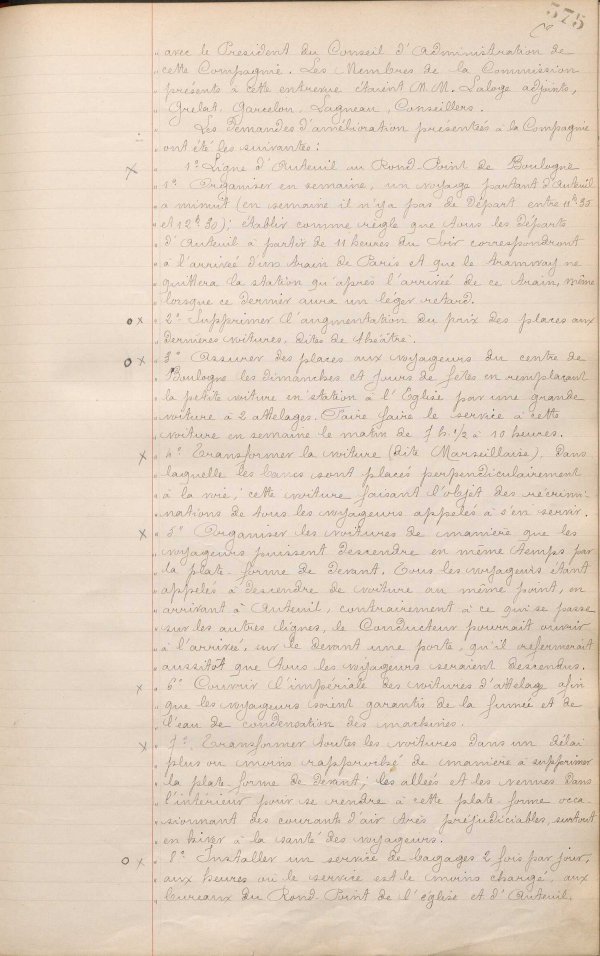 575
avec le President du Conseil d'administration de
cette Compagnie. Les Membres de la Commission
présents à cette entrevue étaient M.M. Laloge adjoints,
Grelat, Garcelon, Lagneau, Conseillers.
Les Demandes d'amélioration presentées à la Compagnie
ont été les suivantes :
1º Ligne d'Auteuil au Rond-Point de Boulogne
1º Organiser en semaine, un voyage partant d'Auteuil
à minuit (en semaine il n'y a pas de départ entre 11h 35
et 12h 30); établir comme règle que tous les départs
d'Auteuil à partir de 11 heures du soir correspondront
à l'arrivée d'un train de Paris et que le tramway ne
quittera la station qu'après l'arrivée de ce train, même
lorsque ce dernier aura un leger retard.
2º Supprimer l'augmentation du prix des places aux
dernières voitures, dites de théâtre.
3º Assurer des places aux voyageurs du centre de
Boulogne les dimanches et jours de fêtes en remplaçant
la petite voiture en station à l'Eglise par une grande
voiture à 2 attelages. Faire faire le service à cette
voiture en semaine le matin de 7 h. 1/2 à 10 heures.
4º Transformer la voiture (dite Marseillaise), dans
laquelle les bancs sont placés perpendiculairement
à la voie, cette voiture faisant l'objet des récrimi-
nations de tous les voyageurs appelés à s'en servir.
5º Organiser les voitures de manière que les
voyageurs puissent descendre en même temps par
la plate-forme de devant. Tous les voyageurs étant
appelés à descendre de voiture au même point, en
arrivant à Auteuil, contrairement à ce qui se passe
sur les autres lignes, le Conducteur pourrait ouvrir
à l'arrivée, sur le devant une porte, qu'il refermerait
aussitôt que tous les voyageurs seraient descendus.
6º Couvrir l'impériale des voitures d'attelage afin
que les voyageurs soient garantis de la fumée et de
l'eau de condensation des machines.
7º. Transformer toutes les voitures dans un délai
plus ou moins rapproché de manière à supprimer
la plate-forme de devant; les allées et les venues dans
l'intérieur pour se rendre à cette plate-forme occa-
sionnant des courants d'air très préjudiciables, surtout
en hiver à la santé des voyageurs.
8º Installer un service de bagages 2 fois par jour,
aux heures ou le service est le moins chargé, aux
bureaux du Rond-Point de l'église et d'Auteuil.